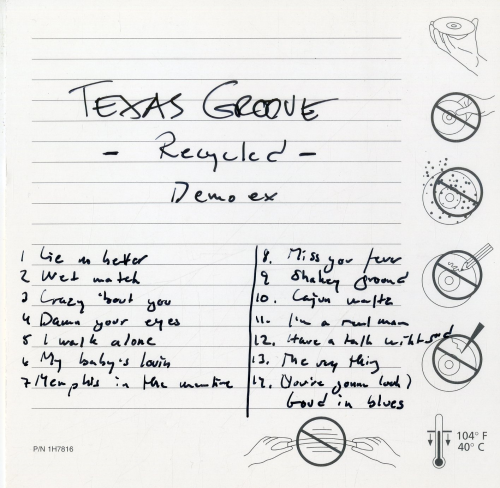 TEXAS GROOVE
- Recycled -
Demo ex
1 Lie m better
2 Wet match
3 Crazy 'bout you
4 Damn your eyes
5 I walk alone
6 My baby's lovin
7 Memphis in the meantime
8. Miss you fever
9 Shakey ground
10. Cajun waltz
11. I'm a real man
12. Have a talk with God
13. The very thing
14. (You're gonna look)
Good in blues
P/N 1H7816
104° F
40° C